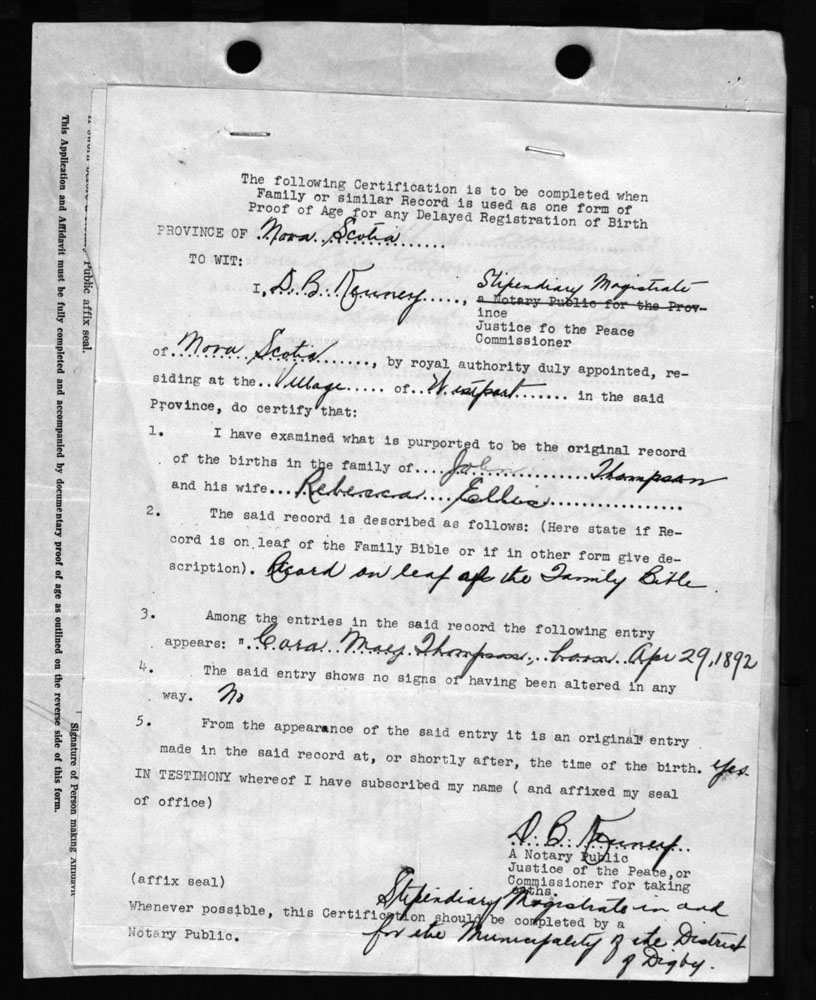 The following Certification is to be completed when
Family or similar Record is used as one form of
Proof of Age for any Delayed Registration of Birth
PROVINCE OF Nova Scotia
TO WIT:
I, D. B. Kenney....., Stipendiary Magistrate
a Notary Public for the Prov-
ince
Justice fo the Peace
Commissioner
of..Nova Scotia......., by royal authority duly appointed, re-
siding at the..Village..... of..Westport....... in the said
Province, do certify that:
1. I have examined what is purported to be the original record
of the births in the family of....John..............Thompson
and his wife...Rebecca....Ellis.................
2. The said record is described as follows: (Here state if Re-
cord is on leaf of the Family Bible or if in other form give de-
scription). Record on leaf of the Family Bible.
3. Among the entries in the said record the following entry
appears: "Cora..May Thompson, born..Apr 29, 1892
4. The said entry shows no signs of having been altered in any
way. No
5. From the appearance of the said entry it is an original entry
made in the said record at, or shortly after, the time of the birth. Yes.
IN TESTIMONY whereof I have subscribed my name ( and affixed my seal
of office)
D. B. Kenney
A Notary Public
Justice of the Peace, or
Commissioner for taking
oaths.
(affix seal)
Stipendiary Magistrate in and
for the Municipality of the District
of Digby.
Whenever possible, this Certification should be completed by a
Notary Public.
Public affix seal.
This Application and Affidavit must be fully completed and accompanied by documentary proof of age as outlined on the reverse side of this form.
Signature of Person making Affidavit